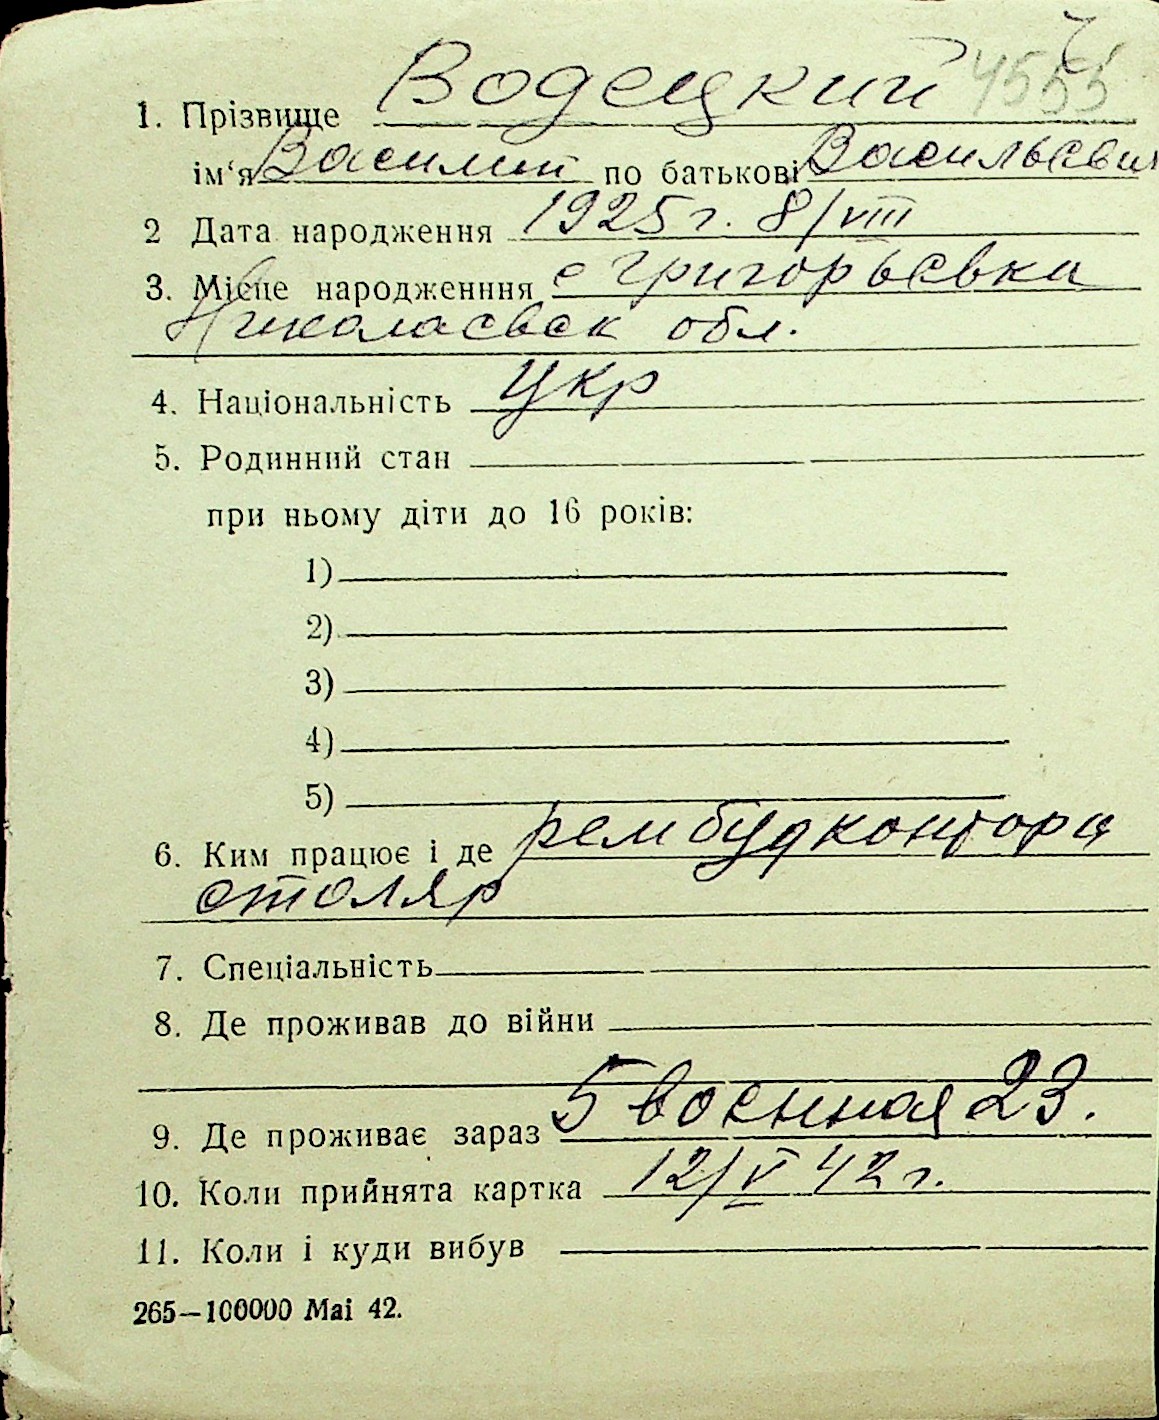 4555
1. Прізвище Водецкий
ім‘я Василий по батькові Васильевич
2 Дата народження 1925 г. 8/VIII
3. Місце народженння с Григорьевка
Николаевск обл.
4. Національність Укр
5. Родинний стан
при ньому діти до 16 років:
1)
2)
3)
4)
5)
6. Ким працює і де рембудконтора
столяр
7. Спеціальність
8. Де проживав до війни
9. Де проживає зараз 5 военная 23.
10. Коли прийнята картка 12/V 42 г.
11. Коли і куди вибув
265—100000 Маі 42.